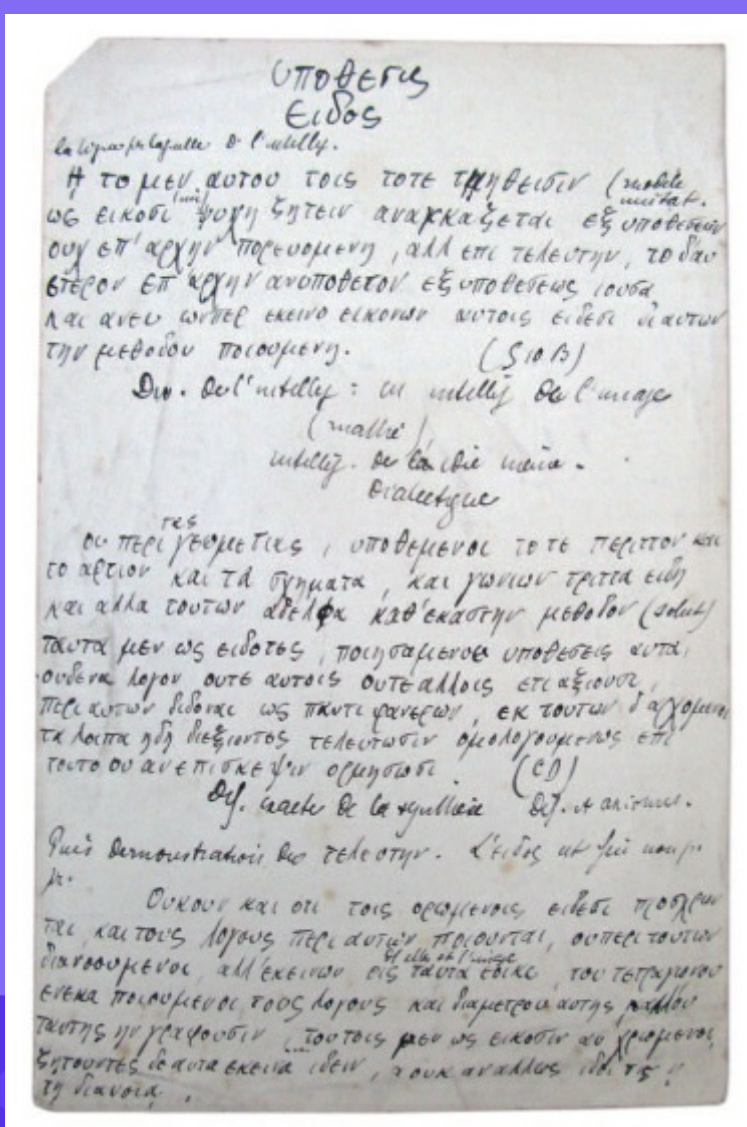 υποθεσις
ειδος
la ligne par laquelle de l'intellig.
Η το μεν αυτου τοις τοτε τμηθεισιν (modèle
ως εικοσι ψυχη ζητειν αναγκαζεται εξ υποθεσεων
ουχ επ' αρχην πορευομενη, αλλ επι τελευτην, το δ'αυ
ετερον επ' αρχην ανυποθετον εξ υποθεσεως ιουσα
και ανευ ωνπερ εκεινο εικονων αυτοις ειδεσι δι αυτων
την μεθοδον ποιουμενη. (510 B)
Div. de l'intellig : en intellig de l'image
(mathé)
intellig. de la idée même.
Dialectique
τας
οι περι γεομετιας, υποθεμενοι το τε περιττον και
το αρτιον και τα σχηματα, και γωνιων τριττα ειδη
και αλλα τουτων αδελφα καθ'εκαστην μεθοδον
ταυτα μεν ως ειδοτες, ποιησαμενοι υποθεσεις αυτα,
ουδενα λογον ουτε αυτοις ουτε αλλοις ετι αξιουσι,
περι αυτων διδοναι ως παντι φανερων, εκ τουτων δ'αρχομενοι
τα λοιπα ηδη διεξιοντος τελευτωσιν ομολογουμενως επι
τουτο ου αν επι σκεψιν ορμησωσι. (CD)
Def. exacte de la synthèse Def. et axiomes.
Puis Demonstration τελευτην. L'ειδος
Ουκουν και οτι τοις ορωμενοις ειδεσι προσχρων
ται, και τους λογους περι αυτων ποιουνται, ου περι τουτων
διανοουμενοι, αλλ'εκεινων οις ταυτα εοικε, του τετραγωνου
ενεκα ποιουμενοι τους λογους και διαμετρου αυτης αλλ ου
ταυτης ην γραφουσιν, τουτοις μεν ως εικοσιν αυ χρωμενοι,
ζητουντες δε αυτα εκεινα ιδειν, α ουκ αν αλλως ιδοι τις η
τη διανοια.